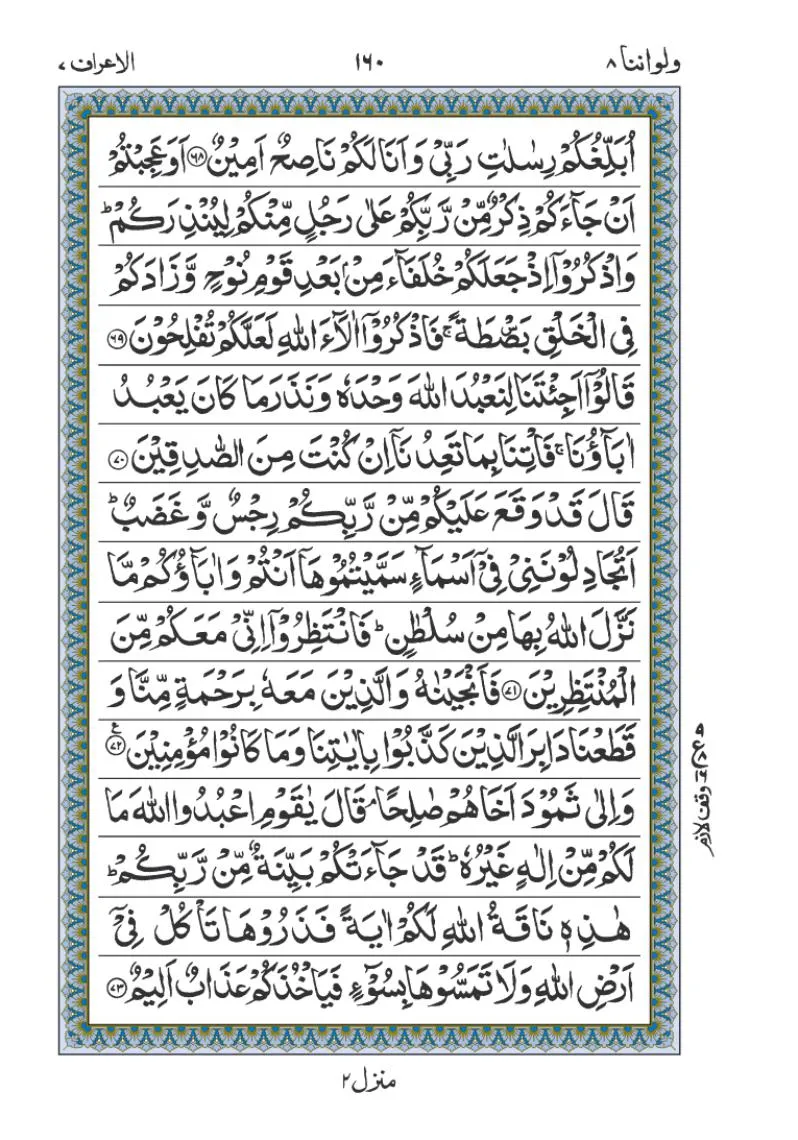 ولواننا ٨ ١٦٠ الاعراف ٧
اُبَلِّغُكُمْ رِسٰلٰتِ رَبِّیْ وَاَنَا لَكُمْ نَاصِحٌ اَمِیْنٌ ﴿۶۸﴾ اَوَعَجِبْتُمْ
اَنْ جَآءَكُمْ ذِكْرٌ مِّنْ رَّبِّكُمْ عَلٰی رَجُلٍ مِّنْكُمْ لِیُنْذِرَكُمْ ؕ
وَاذْكُرُوْۤا اِذْ جَعَلَكُمْ خُلَفَآءَ مِنْۢ بَعْدِ قَوْمِ نُوْحٍ وَّزَادَكُمْ
فِی الْخَلْقِ بَصْۜطَةً ۚ فَاذْكُرُوْۤا اٰلَآءَ اللّٰهِ لَعَلَّكُمْ تُفْلِحُوْنَ ﴿۶۹﴾
قَالُوْۤا اَجِئْتَنَا لِنَعْبُدَ اللّٰهَ وَحْدَهٗ وَنَذَرَ مَا كَانَ یَعْبُدُ
اٰبَآؤُنَا ۚ فَاْتِنَا بِمَا تَعِدُنَاۤ اِنْ كُنْتَ مِنَ الصّٰدِقِیْنَ ﴿۷۰﴾
قَالَ قَدْ وَقَعَ عَلَیْكُمْ مِّنْ رَّبِّكُمْ رِجْسٌ وَّغَضَبٌ ؕ
اَتُجَادِلُوْنَنِیْ فِیْۤ اَسْمَآءٍ سَمَّیْتُمُوْهَاۤ اَنْتُمْ وَاٰبَآؤُكُمْ مَّا
نَزَّلَ اللّٰهُ بِهَا مِنْ سُلْطٰنٍ ؕ فَانْتَظِرُوْۤا اِنِّیْ مَعَكُمْ مِّنَ
الْمُنْتَظِرِیْنَ ﴿۷۱﴾ فَاَنْجَیْنٰهُ وَالَّذِیْنَ مَعَهٗ بِرَحْمَةٍ مِّنَّا وَ
قَطَعْنَا دَابِرَ الَّذِیْنَ كَذَّبُوْا بِاٰیٰتِنَا وَمَا كَانُوْا مُؤْمِنِیْنَ ﴿۷۲﴾ ع
وَاِلٰی ثَمُوْدَ اَخَاهُمْ صٰلِحًا ۘ قَالَ یٰقَوْمِ اعْبُدُوا اللّٰهَ مَا
لَكُمْ مِّنْ اِلٰهٍ غَیْرُهٗ ؕ قَدْ جَآءَتْكُمْ بَیِّنَةٌ مِّنْ رَّبِّكُمْ ؕ
هٰذِهٖ نَاقَةُ اللّٰهِ لَكُمْ اٰیَةً فَذَرُوْهَا تَاْكُلْ فِیْۤ
اَرْضِ اللّٰهِ وَلَا تَمَسُّوْهَا بِسُوْٓءٍ فَیَاْخُذَكُمْ عَذَابٌ اَلِیْمٌ ﴿۷۳﴾
وقف لازم
منزل ۲